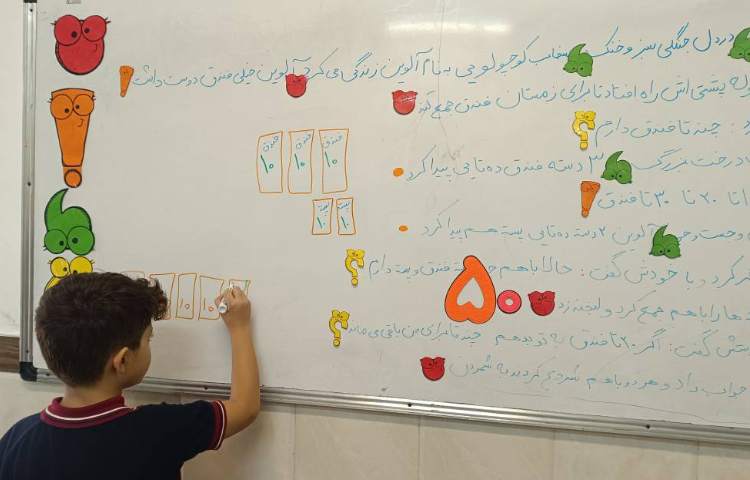 در دل جنگلی سبز و خنک سنجاب کوچولویی به نام آلوین زندگی می‌کرد آلوین خیلی فندق دوست داشت
پشتی اش راه افتاد تا برای زمستان فندق جمع کند
چند تا فندق دارم
درخت بزرگ ۳ دسته فندق ده تایی پیدا کرد
فندق فندق فندق
۱۰ ۱۰ ۱۰
تا ۲۰ تا ۳۰ تا فندق
آلوین ۲ دسته ده تایی پسته هم پیدا کرد
پسته پسته
۱۰ ۱۰
کرد و با خودش گفت : حالا با هم فندق و پسته دارم
۵۰
ها را با هم جمع کرد و لبخند زد
گفت : اگر ۲۰ تا فندق به تو بدهم چند تا برای من باقی می ماند
جواب داد و هر دو با هم شروع کردند به شمردن
۱۰ ۱۰